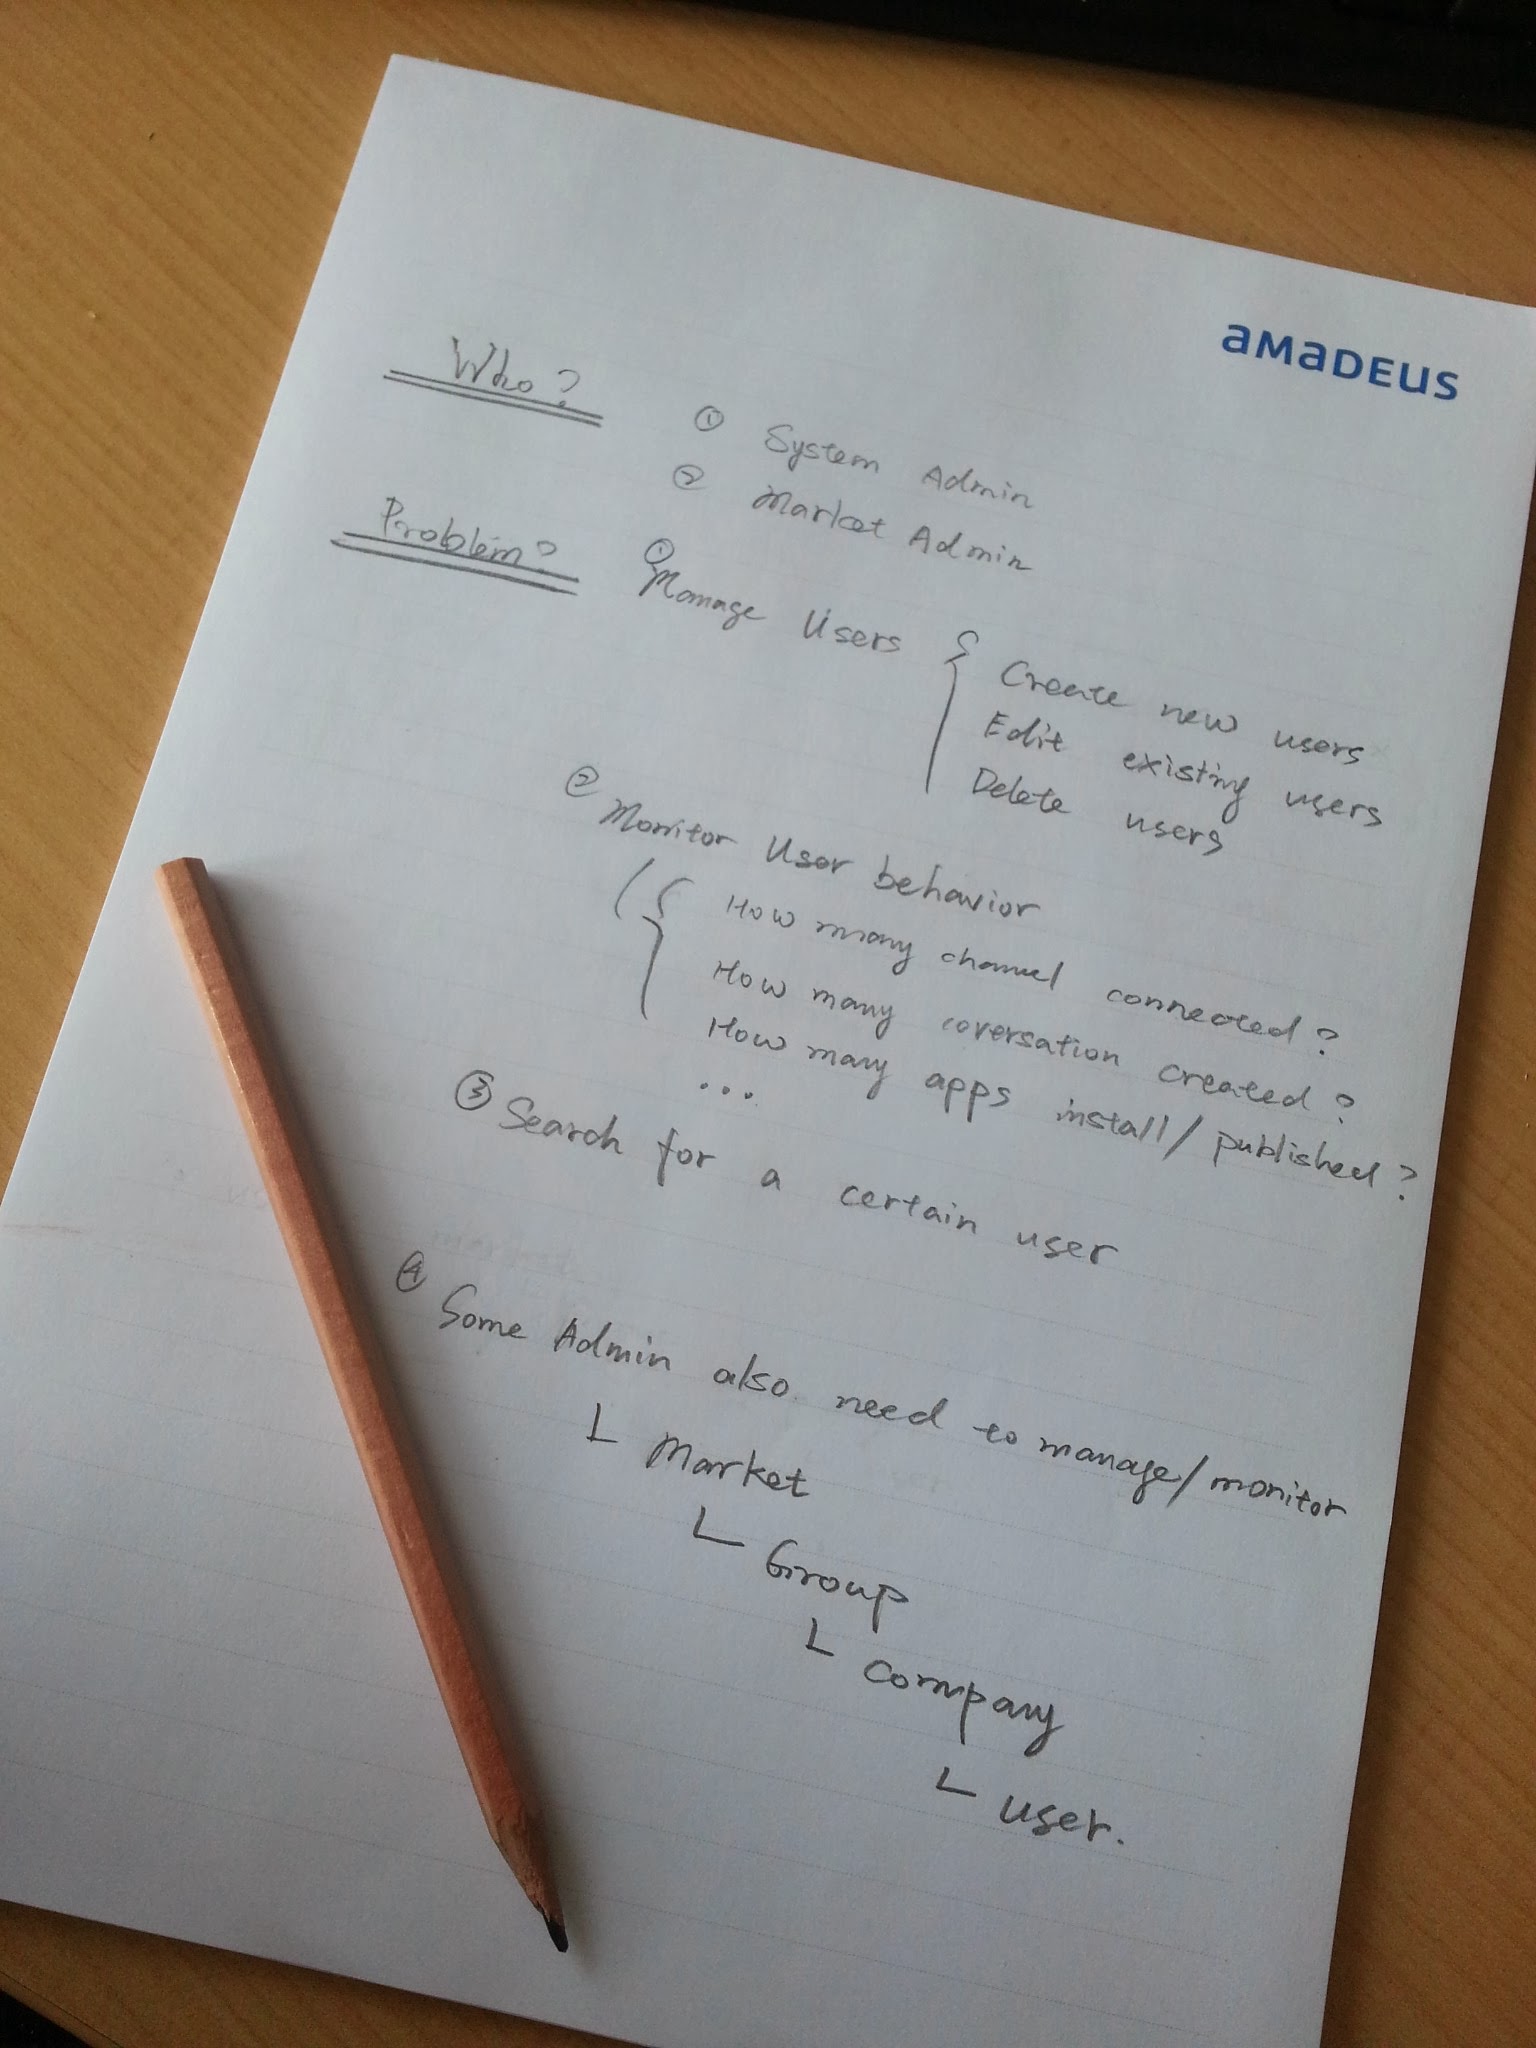 aMaDEUS
Who?
① System Admin
② Market Admin
Problem?
① Manage Users { Create new users
Edit existing users
Delete users
② Monitor User behavior
( { How many channel connected?
How many coversation created?
How many apps install/published?
...
③ Search for a certain user
④ Some Admin also need to manage/monitor
└ Market
└ Group
└ Company
└ user.